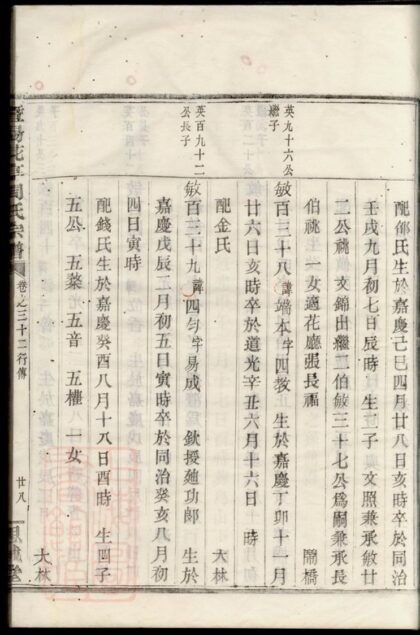 配邵氏生於嘉慶己巳四月廿八日亥時卒於同治
壬戌九月初七日辰時 生二子 文照兼承敏廿
二公祧 文錦出繼二伯敏三十七公爲嗣兼承長
伯祧 一女適花廳張長福 閘橋
英九十六公
繼子
敏百三十八 諱端本字四教 生於嘉慶丁卯十一月
廿六日亥時卒於道光辛丑六月十六日 時
配金氏 大林
英百九十二
公長子
敏百三十九 諱四勻字易成 欽授廸功郎 生於
嘉慶戊辰二月初五日寅時卒於同治癸亥八月初
四日寅時
配錢氏生於嘉慶癸酉八月十八日酉時 生四子
五公 五棻 五音 五權 一女 大林
花亭周氏宗譜 卷之三十二行傳 廿八